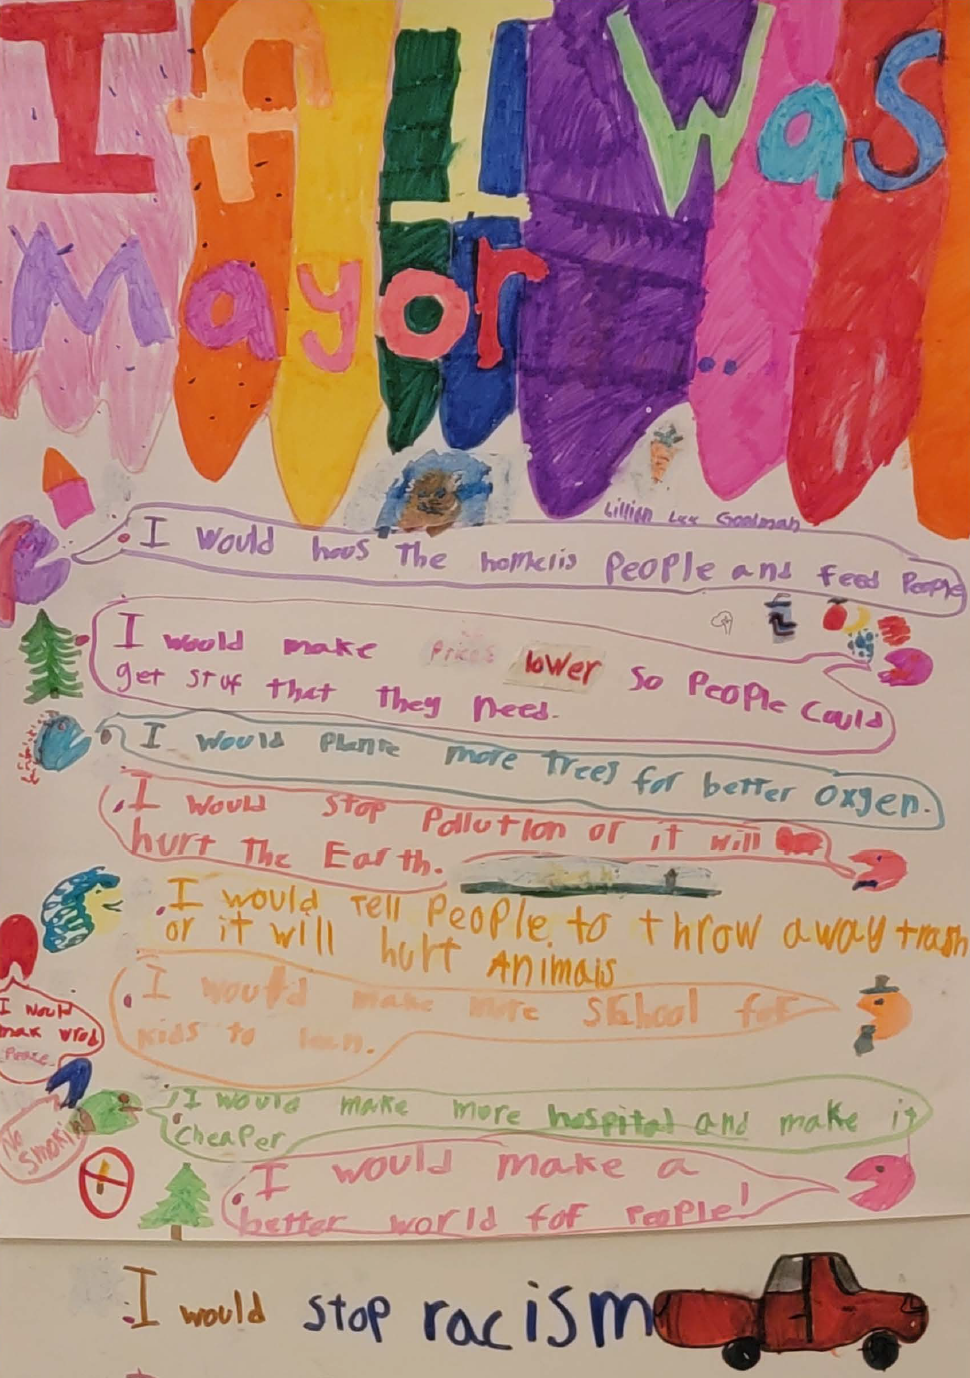 If I Was
Mayor...
Lillian Lee Goodman
I Would hous The homelis People and feed People
I would make Prices lower so People Could
get stuf that they need.
I Would plante more trees for better oxgen.
I would stop Pollution or it will
hurt The Earth.
I would Tell People to throw away trash
or it will hurt Animals
I would make more Skhool for
kids to lern.
I Would
mak wrod
Peace.
I would make more hospital and make it
cheaper
No
smokin
I would make a
better world for People!
I would stop racism